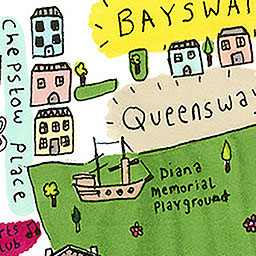 BAYSWA
Chepstow Place
Queenswa
Diana
Memorial
Playground
lub